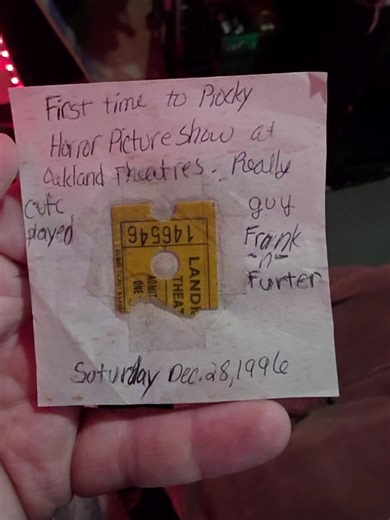 First time to Rocky
Horror Picture show at
Oakland Theatres. Really
cute guy
played Frank
-n-
Furter
146546
LANDM
THEA
ADMIT
ONE
Saturday Dec. 28, 1996